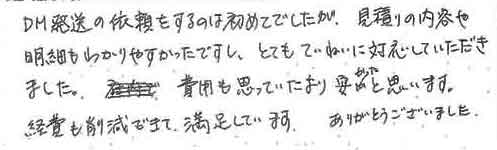 DM発送の依頼をするのは初めてでしたが、見積りの内容や
明細もわかりやすかったですし、とてもていねいに対応していただき
ました。費用も思っていたより安かったと思います。
経費も削減できて、満足しています。ありがとうございました。